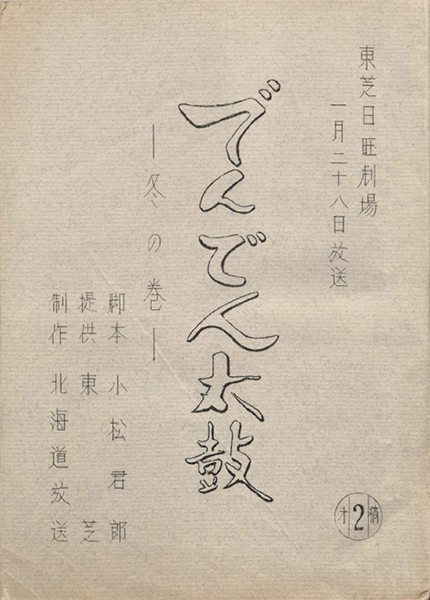 東芝日曜劇場
一月二十八日放送
でんでん太鼓
―冬の巻―
脚本 小松君郎
提供 東芝
制作 北海道放送
才2稿